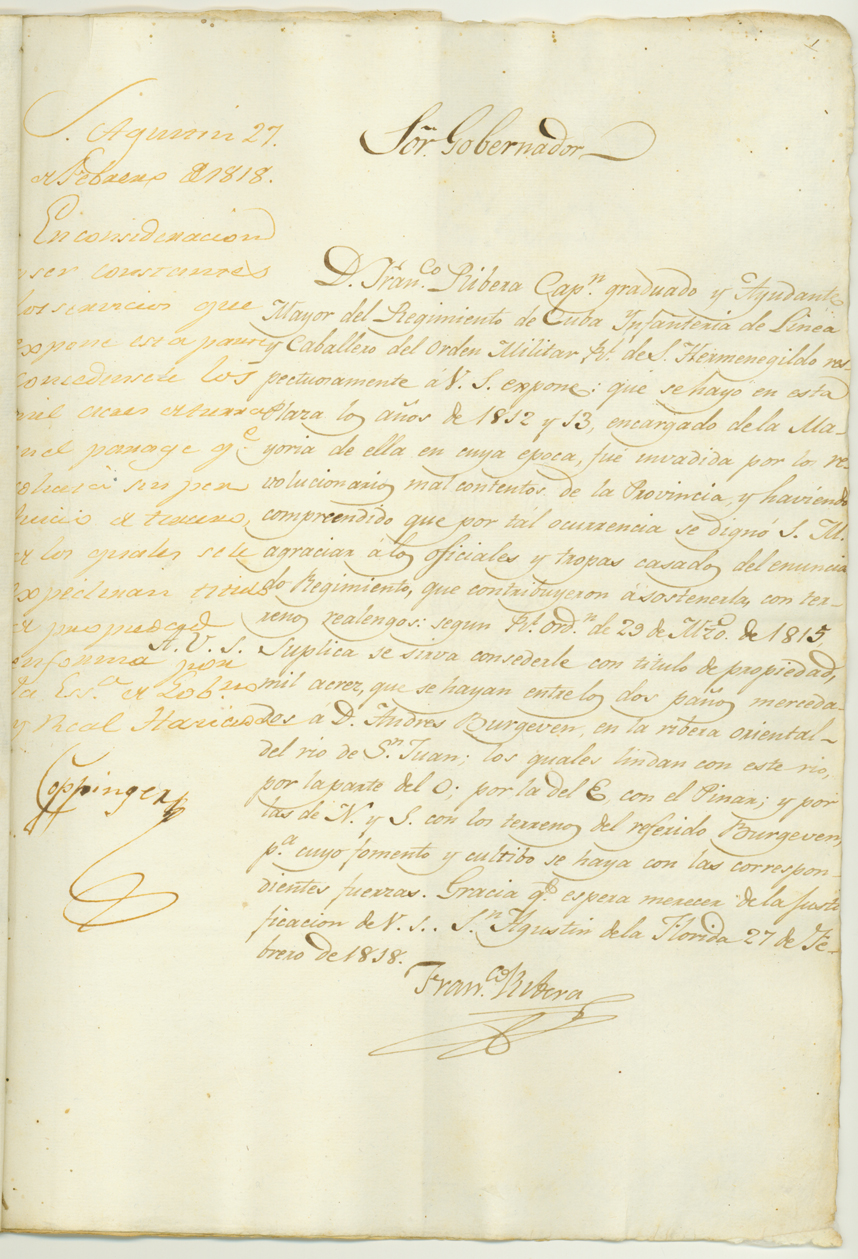 1
S. Agustin 27.
de Febrero de 1818.
En consideracion
a ser constantes
los servicios que
expone esta parte
concedensele los
mil acres de tierra
en el parage q.e
solicita sin per
juicio de tercero,
de los quales se le
expediran titulo
de propiedad
conforme por
la Ess.a de Gob.no
y Real Hacienda
Coppinger
Sõr. Gobernador
D. Fran.co Ribera Cap.n graduado y Ayudante
Mayor del Regimiento de Cuba Ynfanteria de Linea
y Caballero del Orden Militar Rl. de S. Hermenegildo res-
pectuosamente á V. S. expone: que se hayó en esta
Plaza los años de 1812 y 13, encargado de la Ma-
yoria de ella en cuya epoca, fué invadida por los re-
volucionarios mal contentos de la Provincia, y haviendo
comprendido que por tál ocurrencia se dignó S. M.
agraciar á los oficiales y tropas casados del enuncia
do Regimiento, que contribuyeron á sostenerla, con ter-
renos realengos: segun Rl. ord.n de 29 de Mzo. de 1815
A. V. S. Suplica se sirva consederle con titulo de propiedad,
mil acrez, que se hayan entre los dos paños merceda-
dos a D. Andres Burgeven, en la ribera oriental-
del rio de S.n Juan; los quales lindan con este rio,
por la parte del O; por la del E, con el Pinar; y por
las de N. y S. con los terrenos del referido Burgeven,
p.a cuyo fomento y cultibo se haya con las correspon-
dientes fuerzas. Gracia q.e espera merecer de la justi
ficacion de V. S.. S.n Agustin de la Florida 27 de Fe-
brero de 1818.
Fran.co Ribera